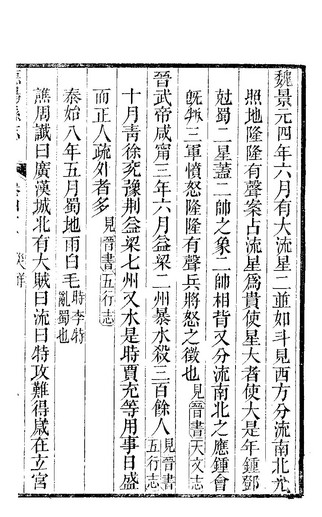 魏景元四年六月有大流星二並如斗見西方分流南北光
照地隆隆有聲案占流星爲貴使星大者使大是年鍾鄧
尅蜀二星蓋二帥之象二帥相背又分流南北之應鍾會
旣叛三軍憤怒隆隆有聲兵將怒之徵也見晉書天文志
晉武帝咸甯三年六月益梁二州暴水殺三百餘人見晉書五行志
十月青徐兖豫荆益梁七州又水是時賈充等用事日盛
而正人疏外者多見晉書五行志
泰始八年五月蜀地雨白毛時李特亂蜀也
譙周讖曰廣漢城北有大賊曰流曰特攻難得歲在立宮